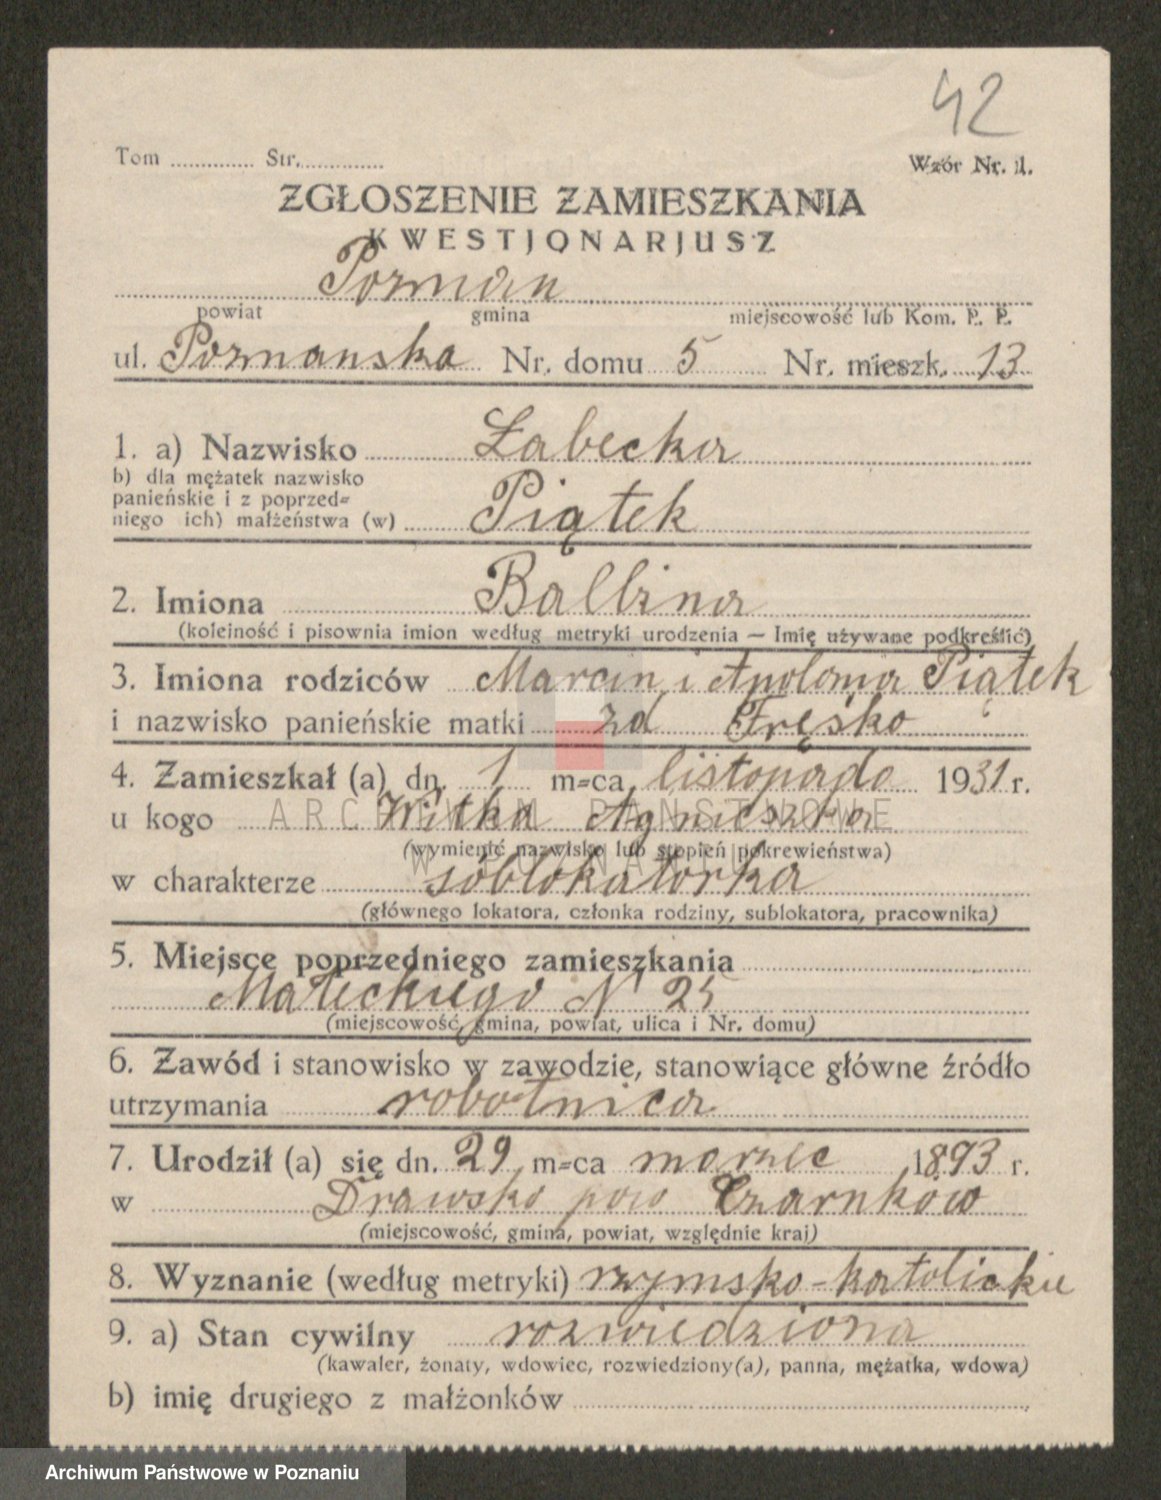 42
Tom ............ Str. ............
Wzór Nr. 1.
ZGŁOSZENIE ZAMIESZKANIA
KWESTJONARJUSZ
Poznań
powiat gmina miejscowość lub Kom. P. P.
ul. Poznanska Nr. domu 5 Nr. mieszk. 13
1. a) Nazwisko Łabecka
b) dla mężatek nazwisko
panieńskie i z poprzed=
niego ich) małżeństwa (w) Piątek
2. Imiona Balbina
(kolejność i pisownia imion według metryki urodzenia — Imię używane podkreślić)
3. Imiona rodziców Marcin i Apolonia Piątek
i nazwisko panieńskie matki zd Fręśko
4. Zamieszkał (a) dn. 1 m=ca listopada 1931 r.
u kogo Witka Agnieszka
(wymienić nazwisko lub stopień pokrewieństwa)
w charakterze soblokatorka
(głównego lokatora, członka rodziny, sublokatora, pracownika)
5. Miejsce poprzedniego zamieszkania
Małeckiego N 25
(miejscowość, gmina, powiat, ulica i Nr. domu)
6. Zawód i stanowisko w zawodzie, stanowiące główne źródło
utrzymania robotnica
7. Urodził (a) się dn. 29 m=ca marzec 1893 r.
w Drawsko pow Czarnków
(miejscowość, gmina, powiat, względnie kraj)
8. Wyznanie (według metryki) rzymsko-katolickie
9. a) Stan cywilny rozwiedziona
(kawaler, żonaty, wdowiec, rozwiedziony(a), panna, mężatka, wdowa)
b) imię drugiego z małżonków
ARCHIWUM PAŃSTWOWE
W POZNANIU
Archiwum Państwowe w Poznaniu